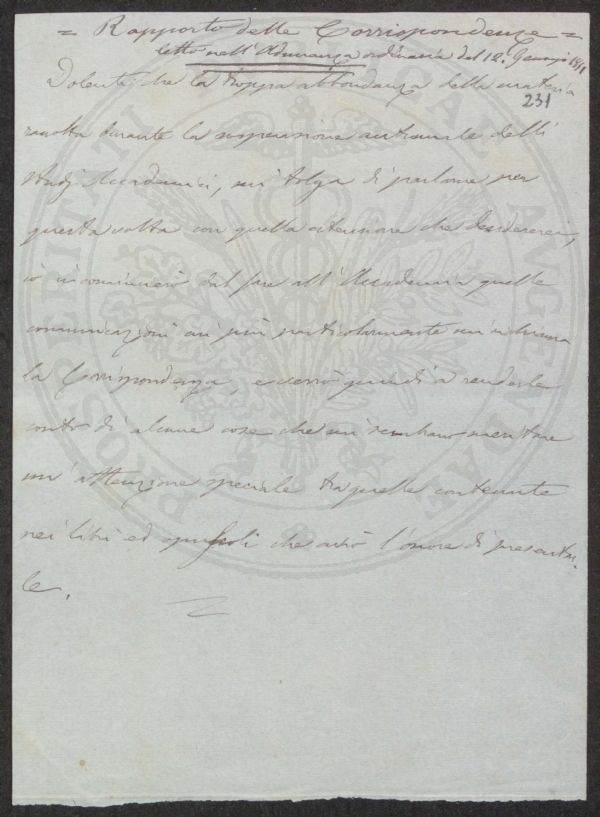 = Rapporto delle Corrispondenze =
letto nell'Adunanza ordinaria del 12. Gennajo
231
Dolente che la troppa abbondanza della materia
raccolta durante la sospensione autunnale delli
studj Accademici, mi tolga di parlarne per
questa volta con quella estensione che desidererei,
io incomincerò dal fare all'Accademia quelle
comunicazioni cui più particolarmente mi richiama
la Corrispondenza, e verrò quindi a renderle
conto di alcune cose che mi sembrano meritare
un'attenzione speciale tra quelle contenute
nei libri ed opuscoli che avrò l'onore di presentar-
le.
PROSPERITATI PUBLICAE AVGENDAE